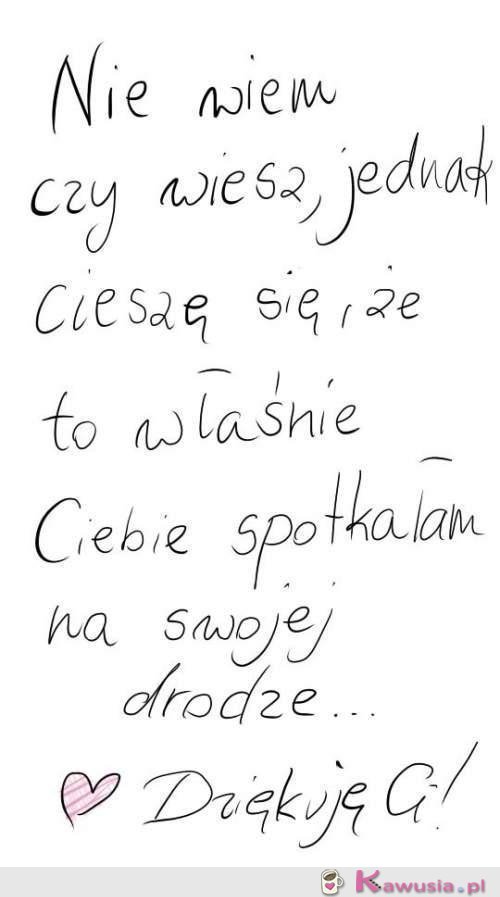 Nie wiem
czy wiesz, jednak
cieszę się, że
to właśnie
Ciebie spotkałam
na swojej
drodze...
Dziękuję Ci!
Kawusia.pl